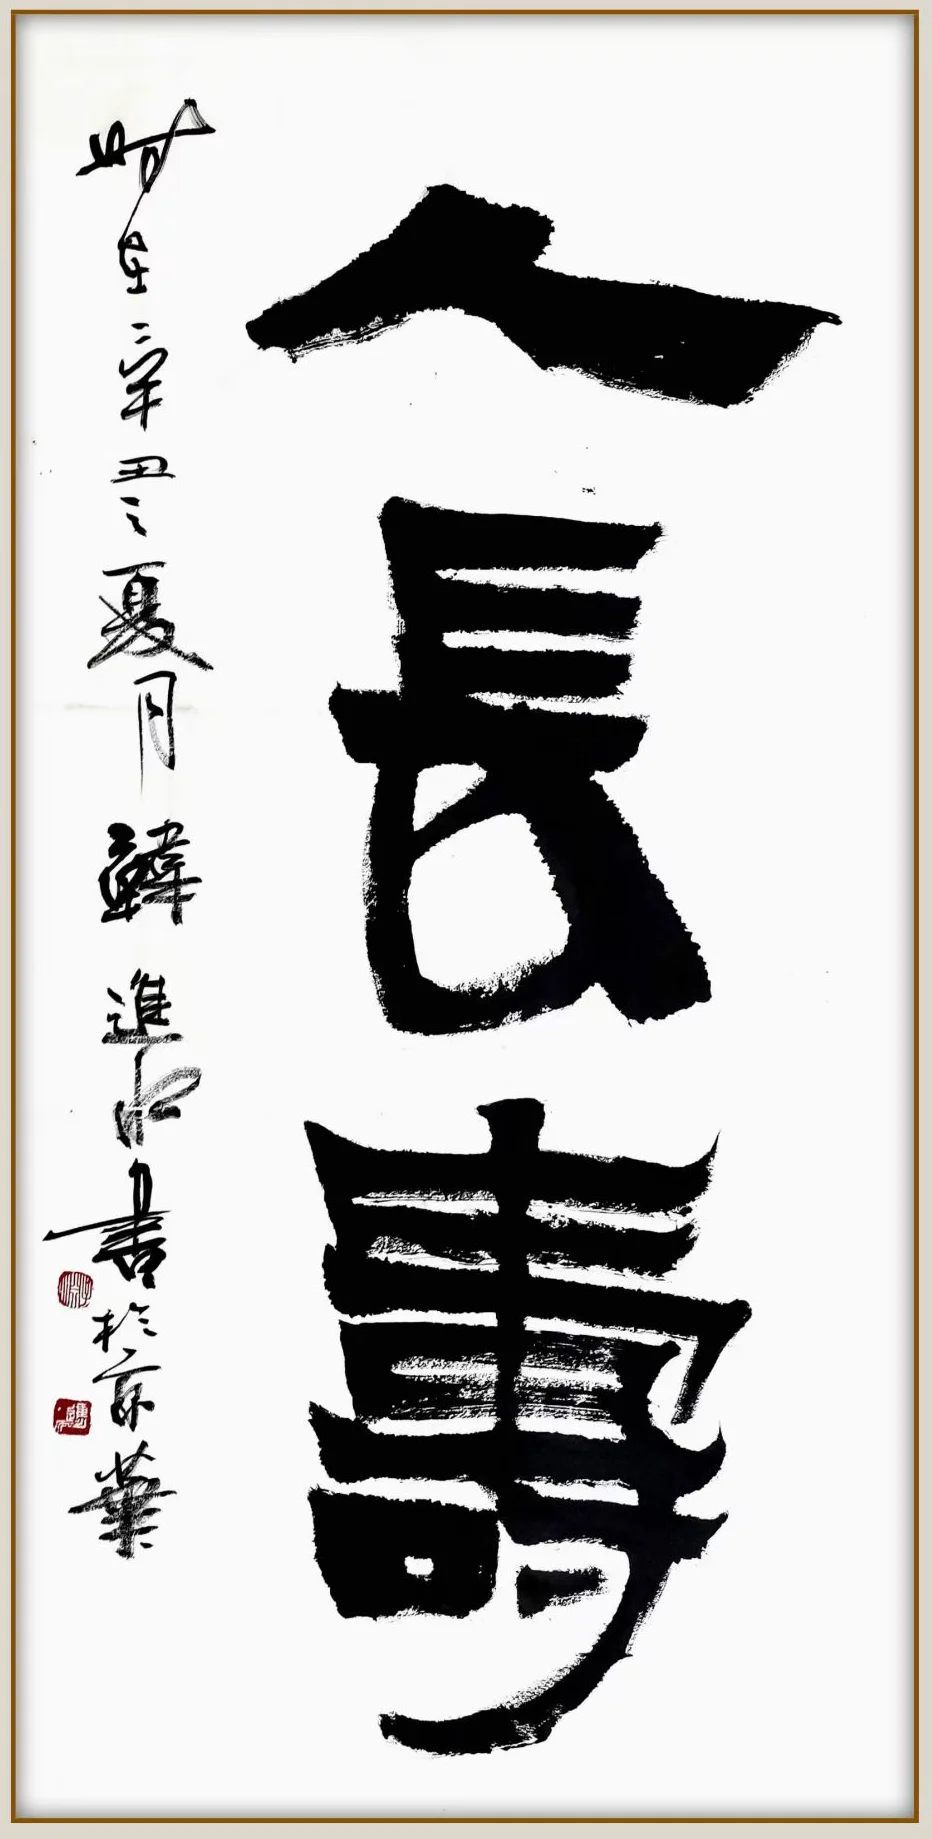 人長壽
時在辛丑之夏月韓進水書於京華